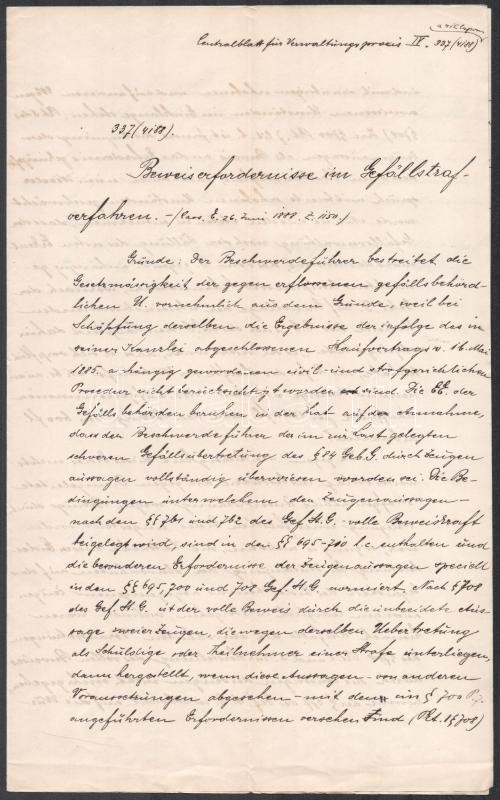 Centralblatt für Verwaltungspraxis IV. 337 (4/88)
337 (4/88).
Beweiserfordernisse im Gefällstraf-
verfahren. – (Cass. E. 26. Juni 1888. Z. 1150.)
Gründe: Der Beschwerdeführer bestreitet die
Gesetzmäsigkeit der gegen erflossenen gefällsbehörd-
lichen U. vornehmlich aus dem Grunde, weil bei
Schöpfung derselben die Ergebnisse der infolge des in
seiner Kanzlei abgeschlossenen Kaufvertrags v. 16. Mai
1885 anhängig gewordenen civil- und strafgerichtlichen
Procedur nicht berücksichtigt worden sind. Die EE. der
Gefällsbehörden beruhen in der That auf der Annahme,
dass der Beschwerdeführer der im zur Last gelegten
schweren Gefällsübertretung des § 84 Geb. G. durch Zeugen
aussagen vollständig überwiesen worden sei. Die Be-
dingungen unter welchem den Zeugenaussagen –
nach den §§ 761 und 762 des Gef. St. G. – volle Beweiskraft
beigelegt wird, sind in den §§ 695–710 l. c. enthalten und
die besonderen Erfordernisse der Zeugenaussagen speciell
in den §§ 695, 700 und 708 Gef. St. G. normiert. Nach § 708
des Gef. St. G. ist der volle Beweis durch die unbeeidete Aus-
sage zweier Zeugen, die wegen derselben Uebertretung
als Schuldige oder Theilnehmer einer Strafe unterliegen,
dann hergestellt, wenn diese Aussagen – von anderen
Voraussetzungen abgesehen – mit den im § 700
angeführten Erfordernissen versehen sind (Pkt. 1 § 708)